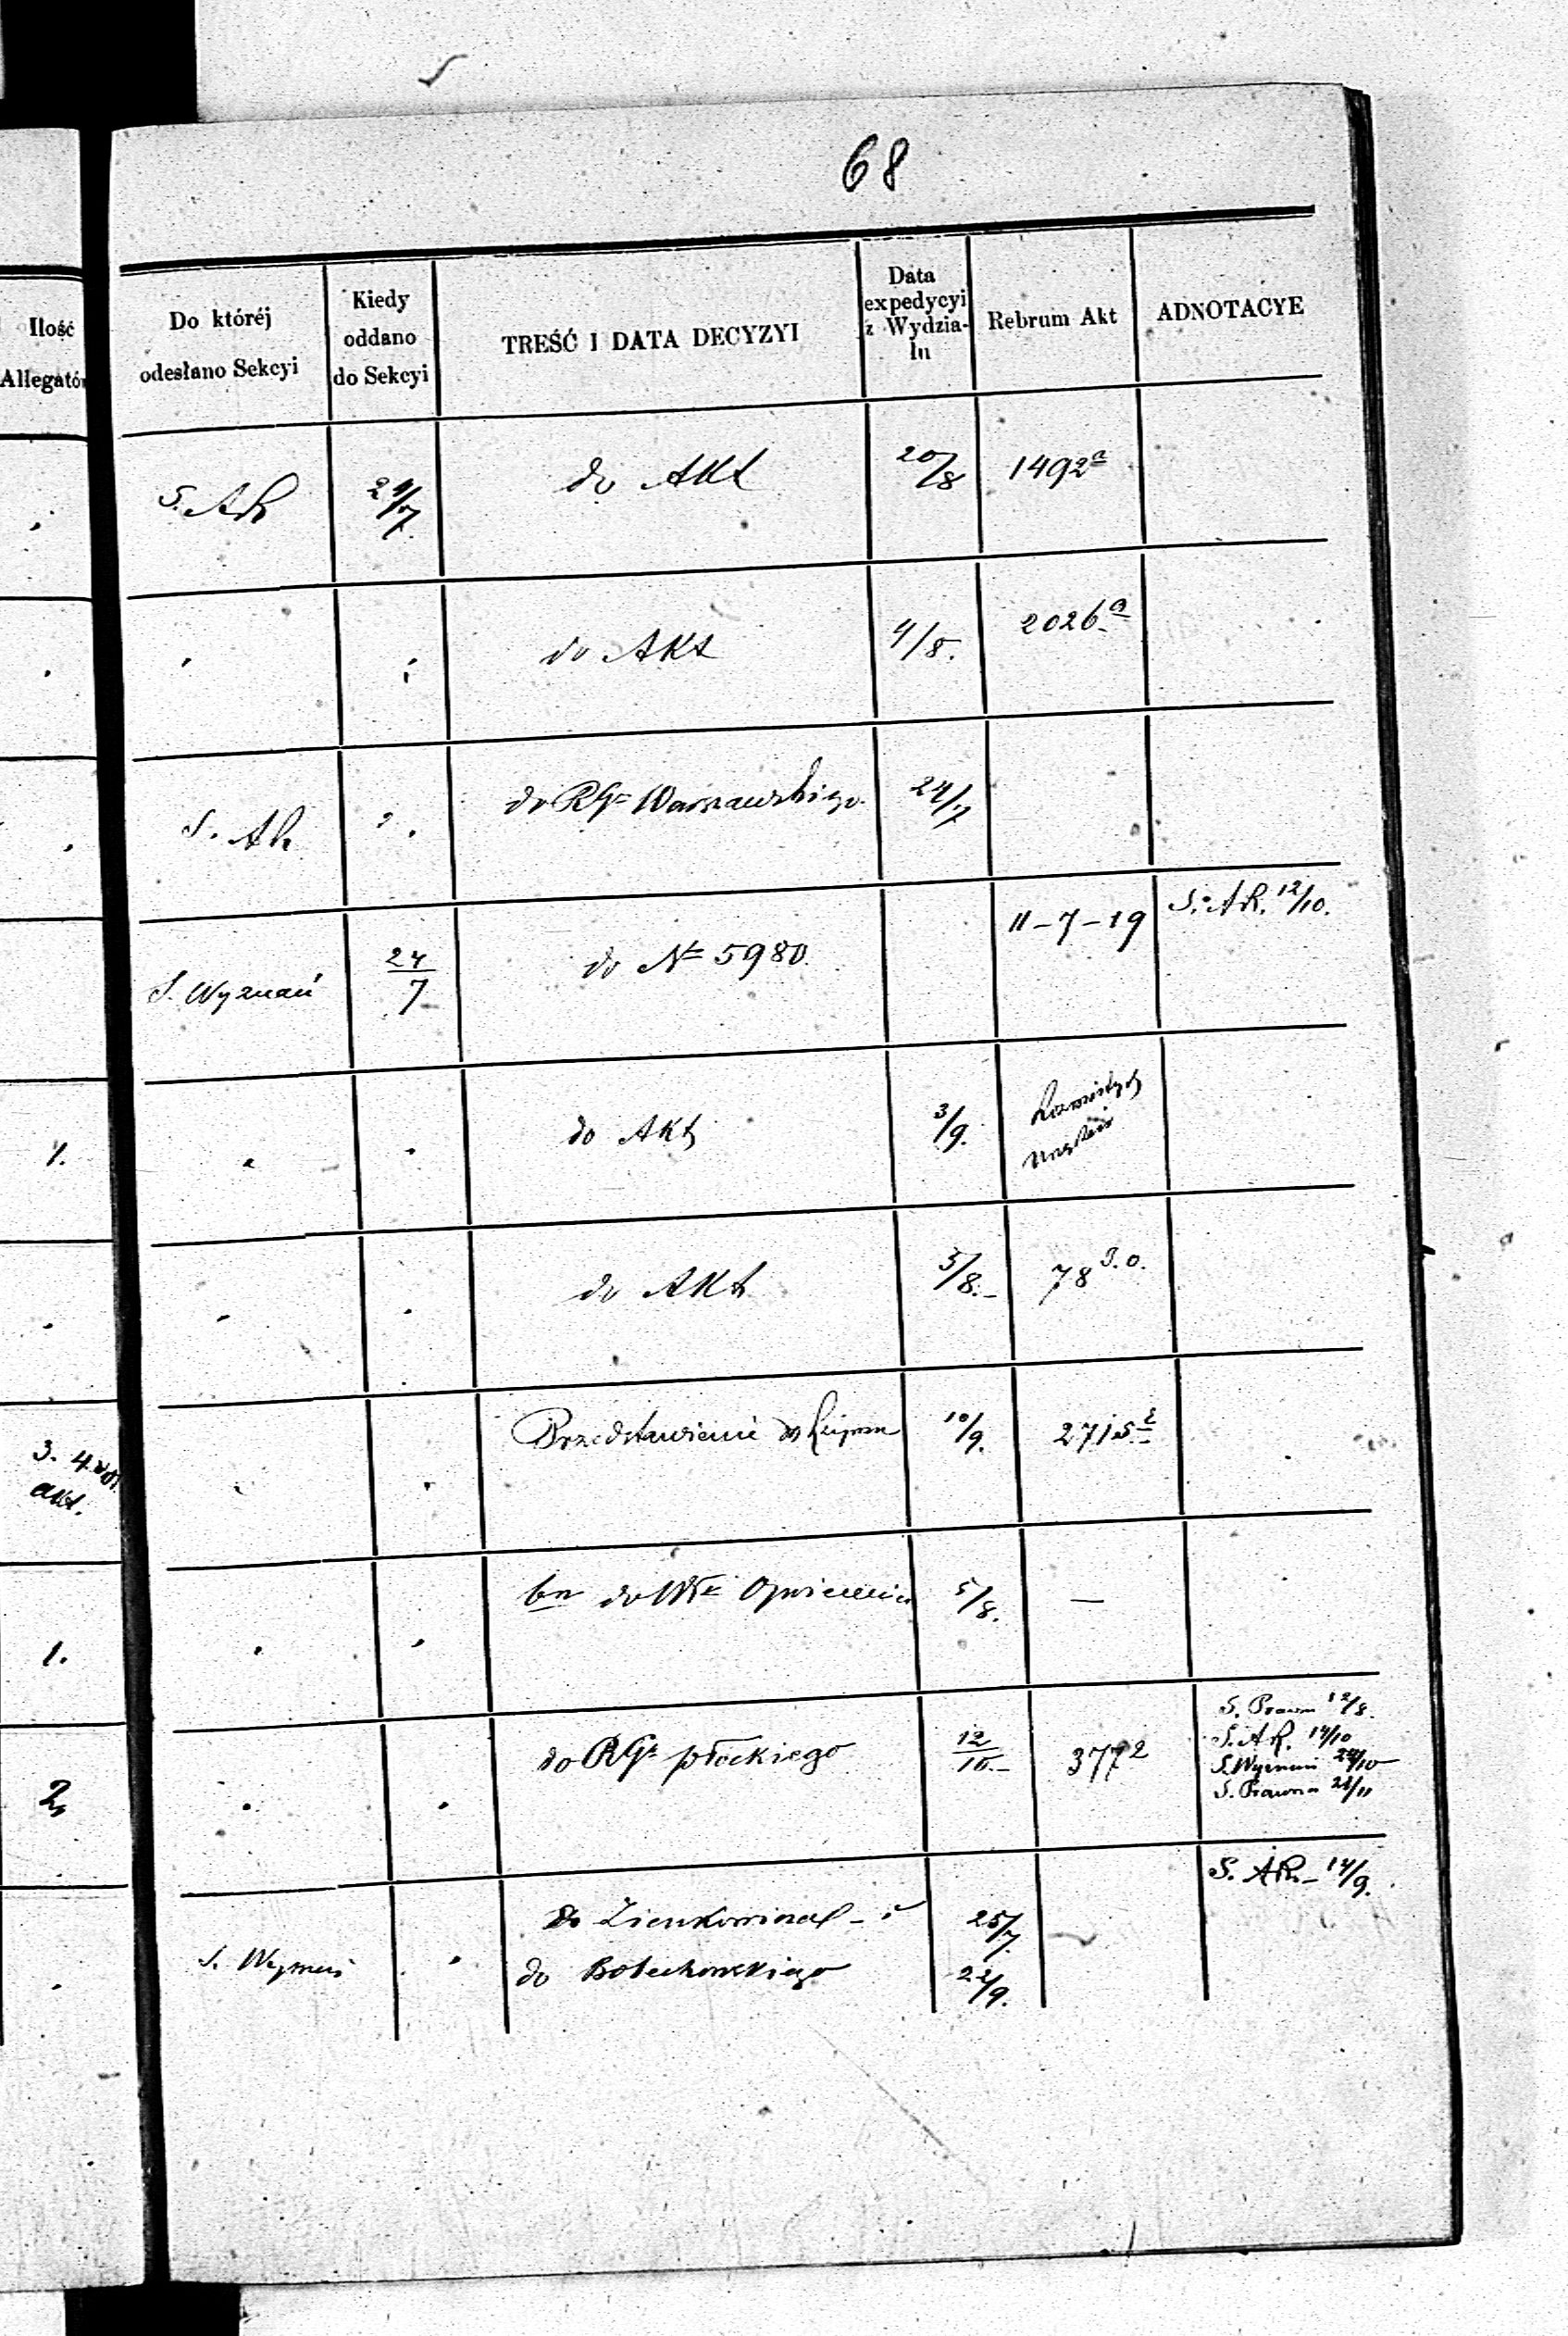 68
Ilość
Allegatów
Do któréj
odesłano Sekcyi
Kiedy
oddano
do Sekcyi
TREŚĆ I DATA DECYZYI
Data
expedycyi
z Wydzia-
łu
Rebrum Akt
ADNOTACYE
S. AR 24/7. do Akt 20/8 1492a
do Akt 4/8. 2026a
S. AR do RGr Warszawskiego. 24/7
S. Wyznań 24/7 do № 5980. 11-7-19 S. AR. 12/10.
1. do Akt 3/9.
do Akt 5/8. 78
3. 4 vol.
akt.
Przedstawienie do 10/9. 2715
1. bn do Oświecenia 5/8. —
2 do RGr płockiego 12/10. 3772
S. Prawn 12/8.
S. AR. 14/10
S. Wyznań 24/10
S. Prawna 28/11
S. Wyznań do 25/7. S. AR. 14/9.
do Bolechowskiego 22/9.